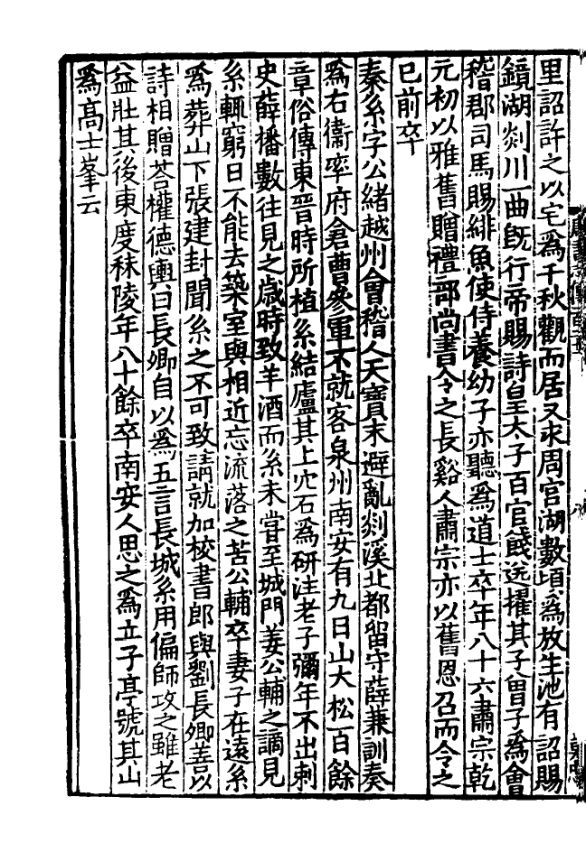 里詔許之以宅爲千秋觀而居又求周宫湖數頃爲放生池有詔賜
鏡湖剡川一曲旣行帝賜詩皇太子百官餞送擢其子曾子爲會
稽郡司馬賜緋魚使侍養幼子亦聽爲道士卒年八十六肅宗乾
元初以雅舊贈禮部尚書令之長谿人肅宗亦以舊恩召而令之
已前卒
秦系字公緒越州會稽人天寶末避亂剡溪北都留守薛兼訓奏
爲右衞率府倉曹參軍不就客泉州南安有九日山大松百餘
章俗傳東晉時所植系結廬其上穴石爲研注老子彌年不出刺
史薛播數往見之歲時致羊酒而系未嘗至城門姜公輔之謫見
系輒窮日不能去築室與相近忘流落之苦公輔卒妻子在遠系
爲葬山下張建封聞系之不可致請就加校書郎與劉長卿善以
詩相贈荅權德輿曰長卿自以爲五言長城系用偏師攻之雖老
益壯其後東度秣陵年八十餘卒南安人思之爲立子亭號其山
爲高士峯云